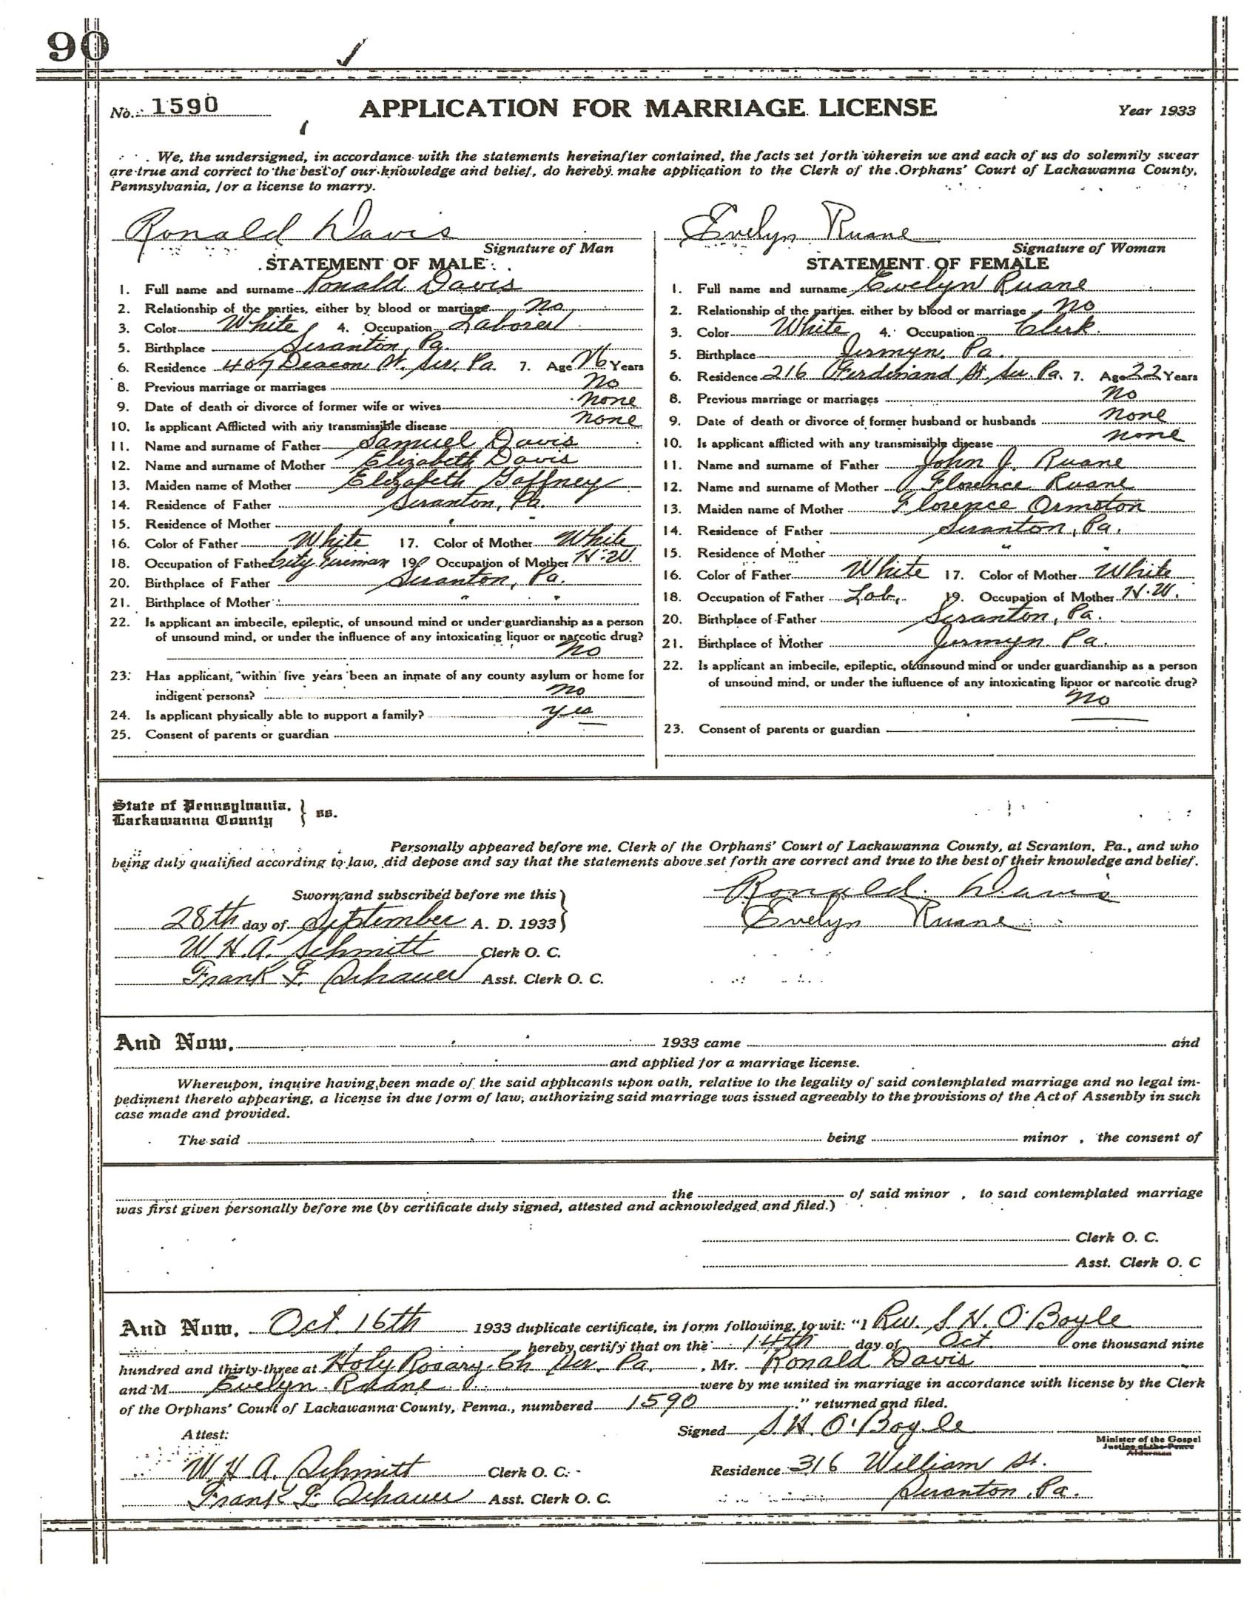 90
No. 1590 APPLICATION FOR MARRIAGE LICENSE Year 1933
We, the undersigned, in accordance with the statements hereinafter contained, the facts set forth wherein we and each of us do solemnly swear
are true and correct to the best of our knowledge and belief, do hereby make application to the Clerk of the Orphans' Court of Lackawanna County,
Pennsylvania, for a license to marry.
Ronald Davis
Signature of Man
STATEMENT OF MALE
1. Full name and surname Ronald Davis
2. Relationship of the parties, either by blood or marriage No
3. Color White 4. Occupation Laborer
5. Birthplace Scranton, Pa.
6. Residence 407 Deacon St. Scr. Pa. 7. Age 26 Years
8. Previous marriage or marriages No
9. Date of death or divorce of former wife or wives none
10. Is applicant Afflicted with any transmissible disease none
11. Name and surname of Father Samuel Davis
12. Name and surname of Mother Elizabeth Davis
13. Maiden name of Mother Elizabeth Gaffney
14. Residence of Father Scranton, Pa.
15. Residence of Mother " "
16. Color of Father White 17. Color of Mother White
18. Occupation of Father City Fireman 19. Occupation of Mother H.W.
20. Birthplace of Father Scranton, Pa.
21. Birthplace of Mother " "
22. Is applicant an imbecile, epileptic, of unsound mind or under guardianship as a person
of unsound mind, or under the influence of any intoxicating liquor or narcotic drug?
No
23. Has applicant, within five years been an inmate of any county asylum or home for
indigent persons? No
24. Is applicant physically able to support a family? Yes
25. Consent of parents or guardian
Evelyn Ruane
Signature of Woman
STATEMENT OF FEMALE
1. Full name and surname Evelyn Ruane
2. Relationship of the parties, either by blood or marriage No
3. Color White 4. Occupation Clerk
5. Birthplace Jermyn, Pa.
6. Residence 216 Ferdinand St. Scr. Pa. 7. Age 22 Years
8. Previous marriage or marriages No
9. Date of death or divorce of former husband or husbands none
10. Is applicant afflicted with any transmissible disease none
11. Name and surname of Father John J. Ruane
12. Name and surname of Mother Florence Ruane
13. Maiden name of Mother Florence Ormston
14. Residence of Father Scranton, Pa.
15. Residence of Mother " "
16. Color of Father White 17. Color of Mother White
18. Occupation of Father Lab. 19. Occupation of Mother H.W.
20. Birthplace of Father Scranton, Pa.
21. Birthplace of Mother Jermyn Pa.
22. Is applicant an imbecile, epileptic, of unsound mind or under guardianship as a person
of unsound mind, or under the iufluence of any intoxicating lipuor or narcotic drug?
No
23. Consent of parents or guardian
State of Pennsylvania, } ss.
Lackawanna County
Personally appeared before me, Clerk of the Orphans' Court of Lackawanna County, at Scranton, Pa., and who
being duly qualified according to law, did depose and say that the statements above set forth are correct and true to the best of their knowledge and belief.
Sworn and subscribed before me this
28th day of September A. D. 1933
W. H. A. Schmitt Clerk O. C.
Frank F. Schauer Asst. Clerk O. C.
Ronald Davis
Evelyn Ruane
And Now, 1933 came and
and applied for a marriage license.
Whereupon, inquire having been made of the said applicants upon oath, relative to the legality of said contemplated marriage and no legal im-
pediment thereto appearing, a license in due form of law, authorizing said marriage was issued agreeably to the provisions of the Act of Assenbly in such
case made and provided.
The said being minor, the consent of
the of said minor, to said contemplated marriage
was first given personally before me (by certificate duly signed, attested and acknowledged and filed.)
Clerk O. C.
Asst. Clerk O. C
And Now, Oct. 16th 1933 duplicate certificate, in form following, to wit: "I Rev. S. H. O'Boyle
hereby certify that on the 14th day of Oct one thousand nine
hundred and thirty-three at Holy Rosary Ch Scr. Pa. , Mr. Ronald Davis
and M Evelyn Ruane were by me united in marriage in accordance with license by the Clerk
of the Orphans' Court of Lackawanna County, Penna., numbered 1590 " returned and filed.
Attest:
W. H. A. Schmitt Clerk O. C.
Frank F. Schauer Asst. Clerk O. C.
Signed S. H. O'Boyle
Minister of the Gospel
Justice of the Peace
Alderman
Residence 316 William St.
Scranton, Pa.